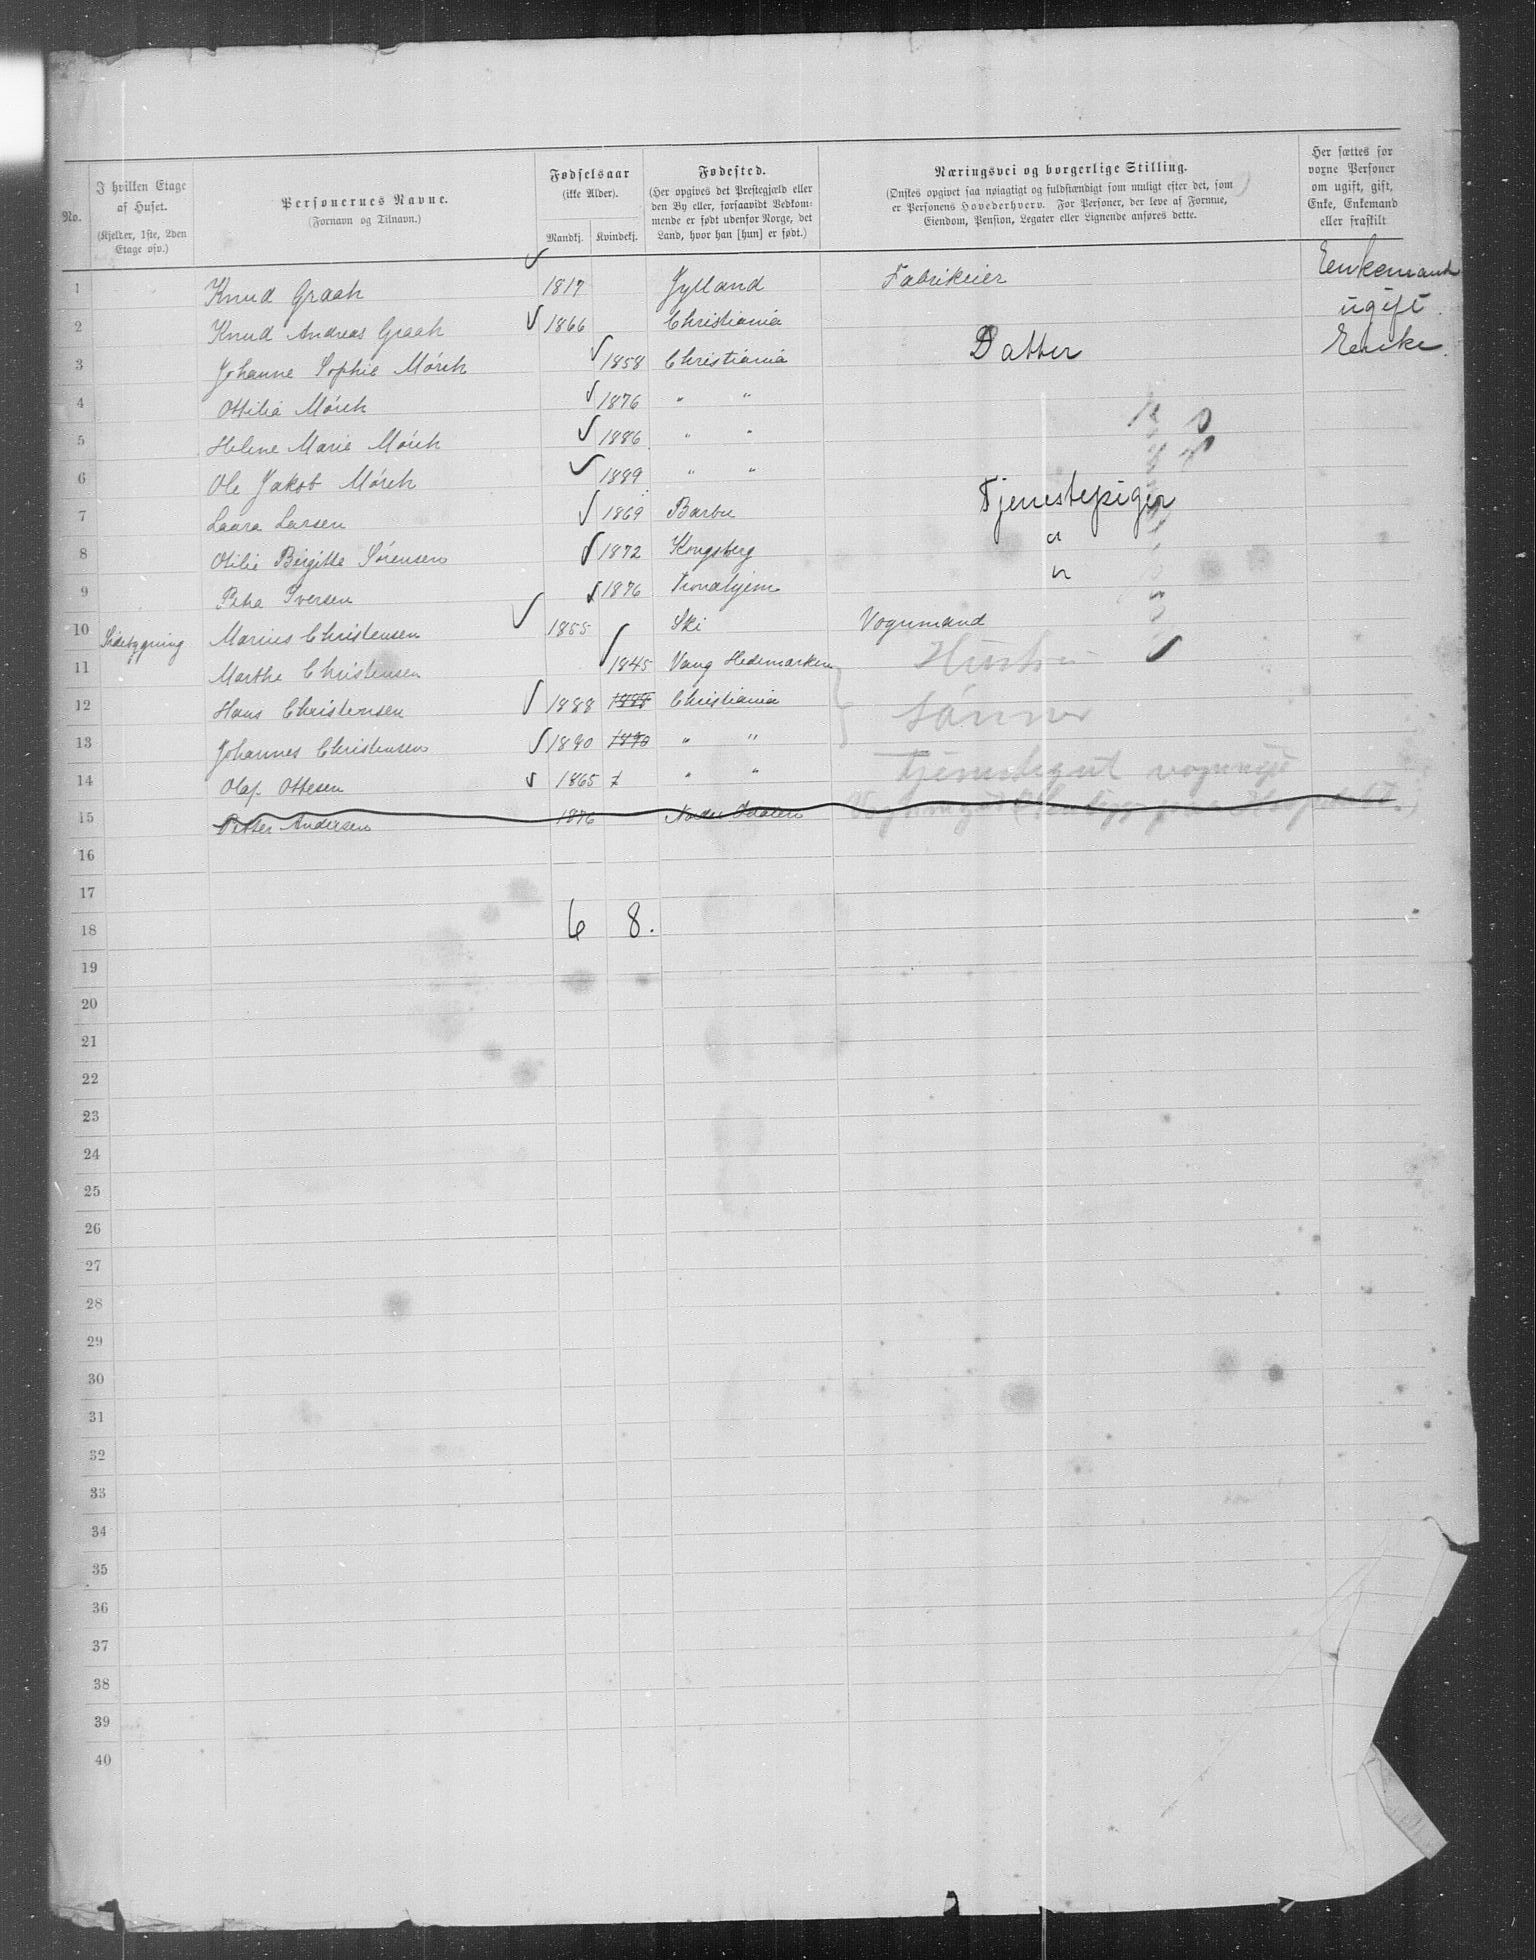 No. | I hvilken Etage af Huset. (Kjelder, 1ste, 2den Etage osv.) | Personernes Navne. (Fornavn og Tilnavn.) | Fødselsaar (ikke Alder). Mandkj. | Kvindekj. | Fødested. (Her opgives det Prestegjæld eller den By eller, forsaavidt Vedkommende er født udenfor Norge, det Land, hvor han [hun] er født.) | Næringsvei og borgerlige Stilling. (Ønskes opgivet saa nøiagtigt og fuldstændigt som muligt efter det, som er Personens Hovederhverv. For Personer, der leve af Formue, Eiendom, Pension, Legater eller Lignende anføres dette.) | Her sættes for voxne Personer om ugift, gift, Enke, Enkemand eller fraskilt
1 Knud Graah 1817 Jylland Fabrikeier Eenkemand
2 Knud Andreas Graah 1866 Christiania ugift.
3 Johanne Sophie Mórch 1858 Christiania Datter Eenke.
4 Ottilia Mórch 1876 " "
5 Helene Marie Mórch 1886 " "
6 Ole Jakob Mórch 1889 " "
7 Laura Larsen 1869 Barbu Tjenestepiger
8 Otilie Birgitte Sórensen 1872 Kongsberg "
9 Petra Iversen 1876 Trondhjem "
10 Sidebygning Marius Christensen 1855 Ski Vognmand
11 Marthe Christensen 1845 Vang Hedemarken Hustru
12 Hans Christensen 1888 1888 Christiania Sónner
13 Johannes Christensen 1890 1890 " "
14 Olaf Ottesen 1865 " " Tjenestegut
15 Petter Andersen 1876 Nordre Odalen
16
17
18 6 8.
19
20
21
22
23
24
25
26
27
28
29
30
31
32
33
34
35
36
37
38
39
40